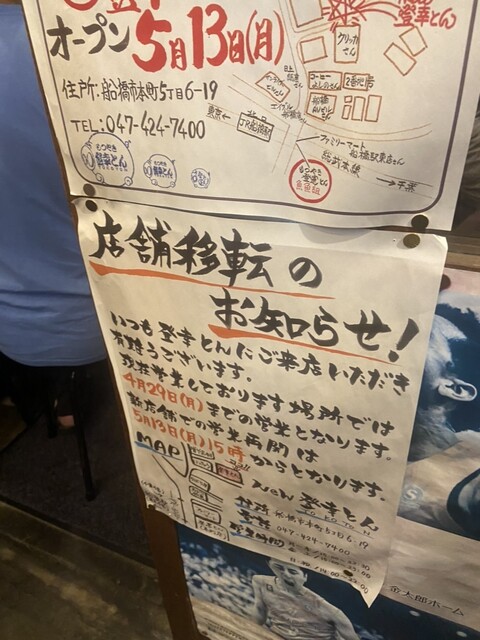 登幸とん
オープン 5月13日(月)
住所:船橋市本町5丁目6-19
TEL:047-424-7400
東京←
JR船橋駅
ファミリーマート
船橋駅東店さん
総武本線
→千葉
もつやき
登幸とん
魚魚組
もつやき
登幸とん
店舗移転の
お知らせ!
いつも登幸とんにご来店いただき
有難うございます。
現在営業しております場所では
4月29日(月)までの営業となります。
新店舗での営業再開は
5月13日(月)15時からとなります。
MAP
New 登幸とん
住所 船橋市本町5丁目6-19
電話 047-424-7400
営業時間
金太郎ホーム